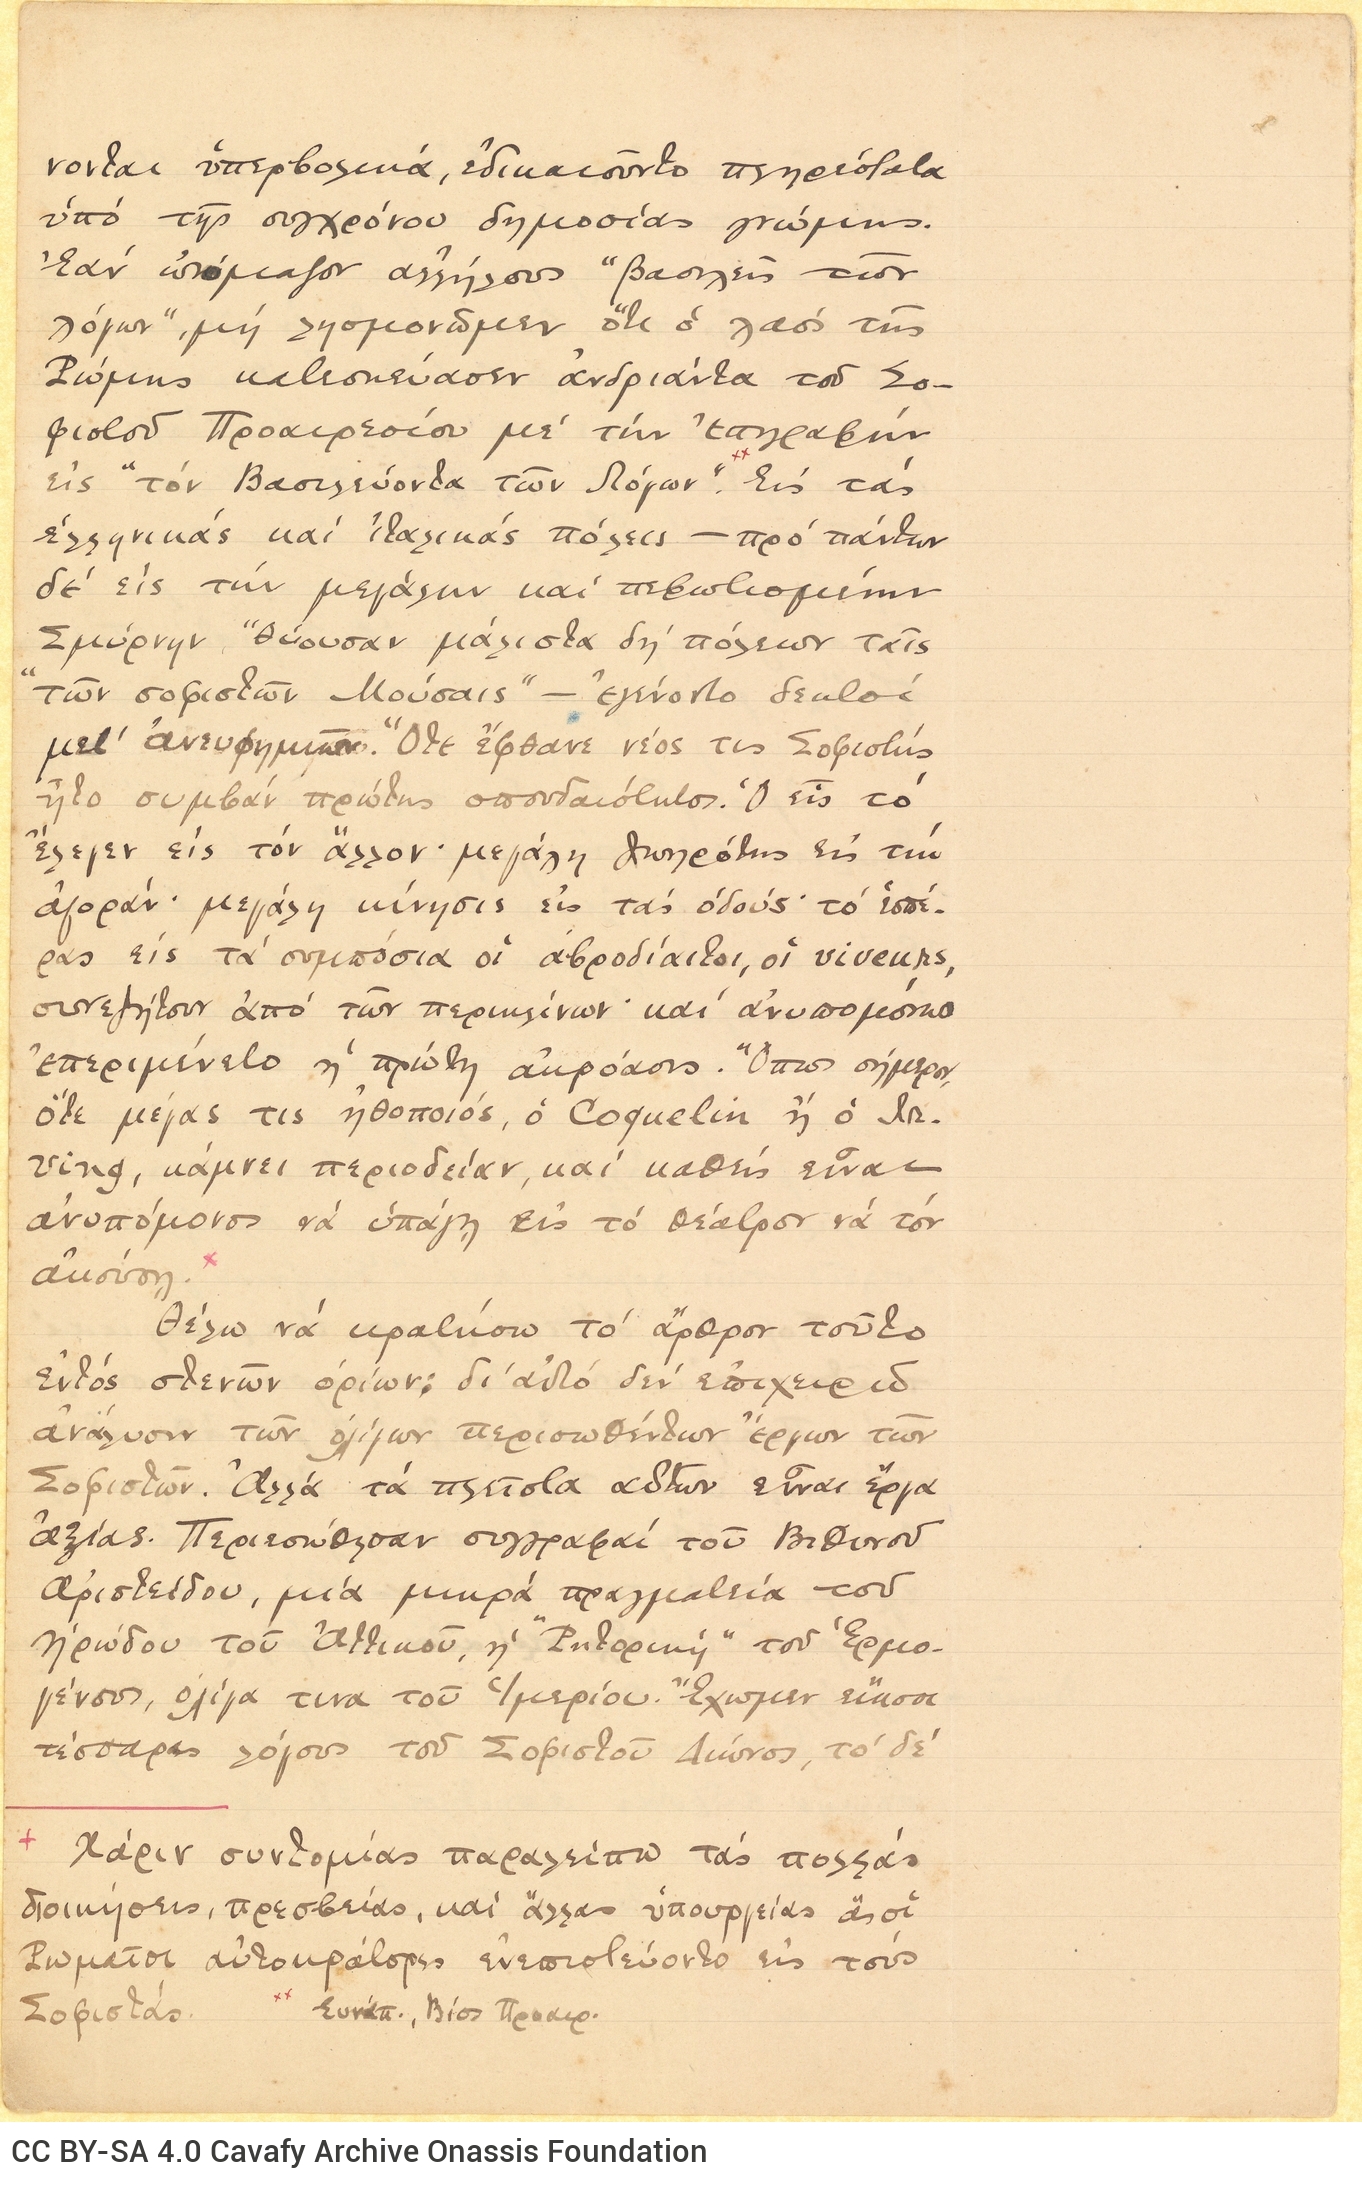 νονται ὑπερβολικά, ἐδικαιοῦντο πληρέστατα
ὑπό τῆς συγχρόνου δημοσίας γνώμης.
Ἐάν ὠνόμαζον ἀλλήλους "βασιλεῖς τῶν
λόγων", μή λησμονῶμεν ὅτι ὁ λαός τῆς
Ῥώμης κατεσκεύασεν ἀνδριάντα τοῦ Σο-
φιστοῦ Προαιρεσίου μέ τήν ἐπιγραφήν
εἰς "τόν Βασιλεύοντα τῶν Λόγων". ×× Εἰς τάς
ἑλληνικάς καί ἰταλικάς πόλεις — πρό πάντων
δέ εἰς τήν μεγάλην καί πεφωτισμένην
Σμύρνην, "θύουσαν μάλιστα δή πόλεων ταῖς
"τῶν σοφιστῶν Μούσαις" — ἐγένοντο δεκτοί
μετ' ἀνευφημιῶν. Ὅτε ἔφθανε νέος τις Σοφιστής
ἦτο συμβάν πρώτης σπουδαιότητος. Ὁ εἷς τό
ἔλεγεν εἰς τόν ἄλλον· μεγάλη ζωηρότης εἰς τήν
ἀγοράν· μεγάλη κίνησις εἰς τάς ὁδούς· τό ἑσπέ-
ρας εἰς τά συμπόσια οἱ ἁβροδίαιτοι, οἱ viveurs,
συνεζήτουν ἀπό τῶν περικλίνων· καί ἀνυπομόνως
ἐπεριμένετο ἡ πρώτη ἀκρόασις. Ὅπως σήμερον,
ὅτε μέγας τις ἠθοποιός, ὁ Coquelin ἤ ὁ Ir-
ving, κάμνει περιοδείαν, καί καθείς εἶναι
ἀνυπόμονος νά ὑπάγῃ εἰς τό θέατρον νά τόν
ἀκούσῃ. ×
Θέλω νά κρατήσω τό ἄρθρον τοῦτο
ἐντός στενῶν ὁρίων; δι' αὐτό δέν ἐπιχειρῶ
ἀνάλυσιν τῶν ὀλίγων περισωθέντων ἔργων τῶν
Σοφιστῶν. Ἀλλά τά πλεῖστα αὐτῶν εἶναι ἔργα
ἀξίας. Περιεσώθησαν συγγραφαί τοῦ Βιθυνοῦ
Ἀριστείδου, μία μικρά πραγματεία τοῦ
Ἡρώδου τοῦ Ἀττικοῦ, ἡ "Ῥητορική" τοῦ Ἑρμο-
γένους, ὀλίγα τινα τοῦ Ἱμερίου. Ἔχωμεν εἴκοσι
τέσσαρας λόγους τοῦ Σοφιστοῦ Δίωνος, τό δέ
+ Χάριν συντομίας παραλείπω τάς πολλάς
διοικήσεις, πρεσβείας, καί ἄλλας ὑπουργείας ἅς οἱ
Ῥωμαῖοι αὐτοκράτορες ἐνεπιστεύοντο εἰς τούς
Σοφιστάς. ×× Εὐνάπ., Βίος Προαιρ.
CC BY-SA 4.0 Cavafy Archive Onassis Foundation